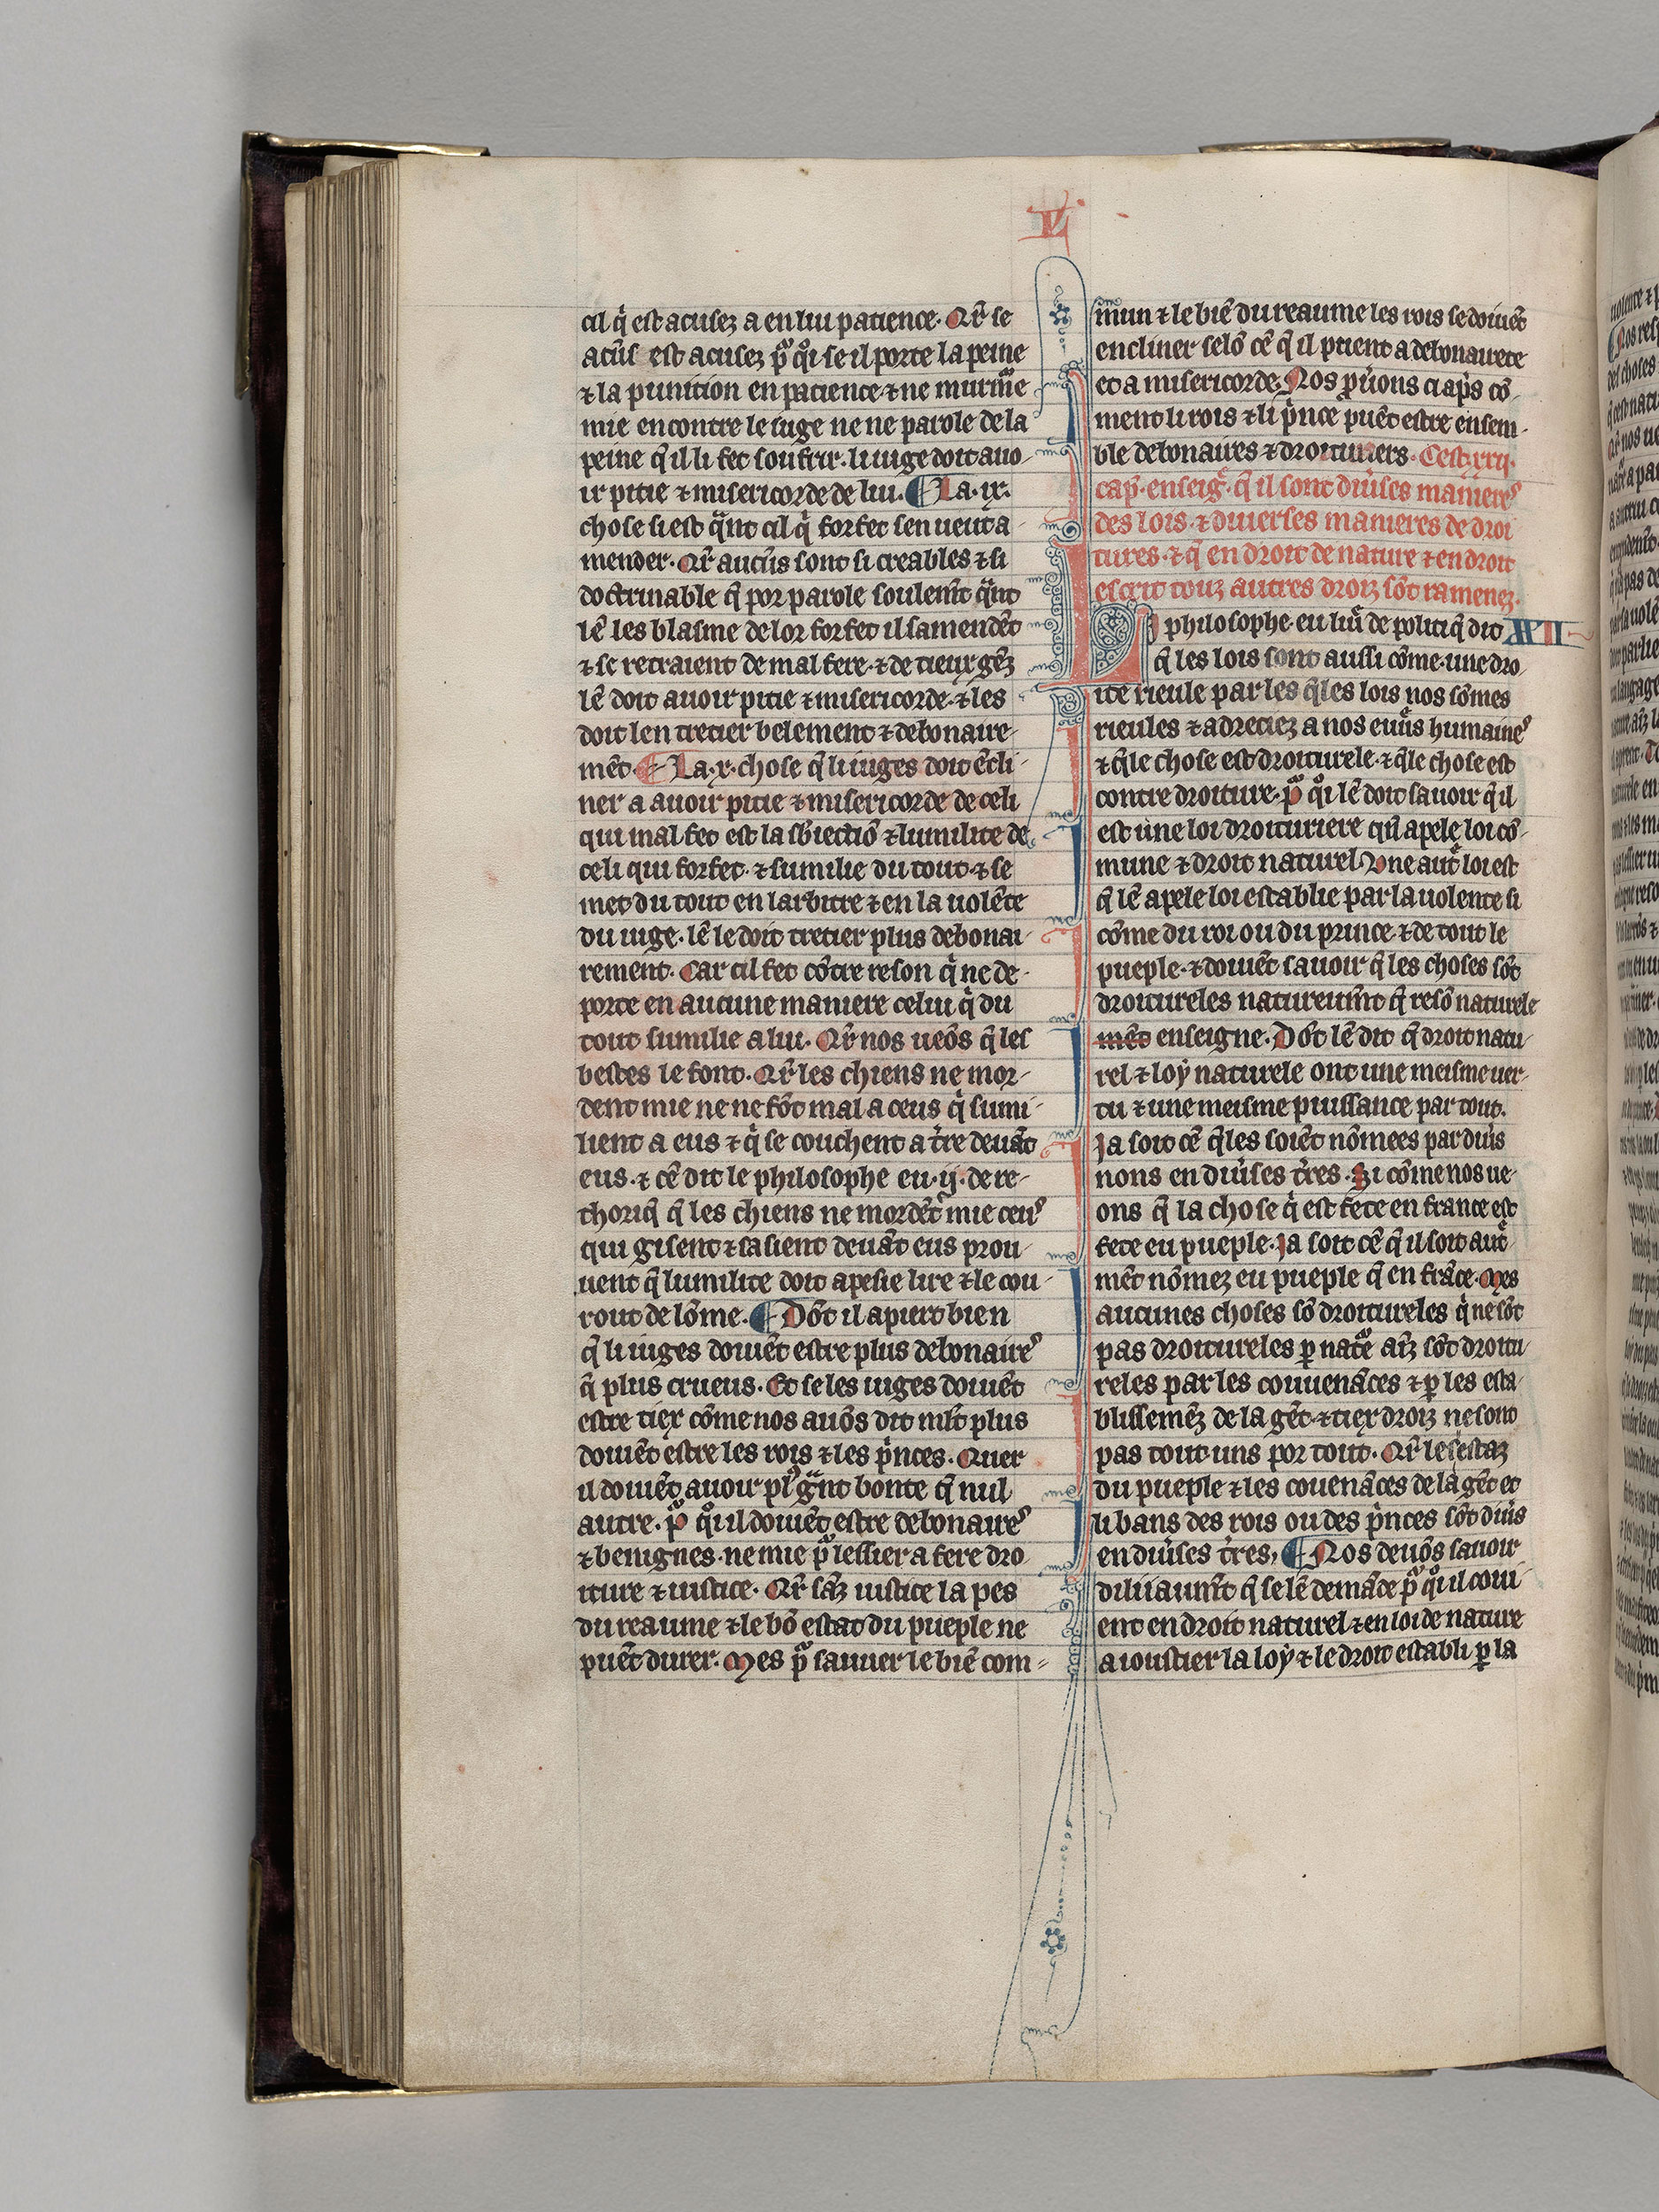 cil q̇ est acusez a en lui patience. Qr̄ se
acūs est acusez p̄ qͦi se il porte la peine
⁊ la punition en patience ⁊ ne murm̄e
mie encontre le iuge ne ne parole de la
peine q̄ il li fet soufrir. li iuge doit auo-
ir pitie ⁊ misericorde de lui. ¶ La .ix.
chose si est qͣnt cil q̇ forfet sen ueut a-
mender. Qr̄ aucūs sont si creables ⁊ si
doctrinable q̄ por parole soulem̄t qͣnt
lē les blasme de lor forfet il samendēt
⁊ se retraient de mal fere. ⁊ de tieux gēz
lē doit auoir pitie ⁊ misericorde. ⁊ les
doit len tretier belement ⁊ debonaire-
mēt. ¶ La .x. chose q̄ li iuges doit ēcli-
ner a auoir pitie ⁊ misericorde de celi
qui mal fet est la sb̄iectiō ⁊ lumilite de
celi qui forfet. ⁊ sumilie du tout. ⁊ se
met du tout en larbitre ⁊ en la uolēte
du iuge. lē le doit tretier plus debonai-
rement. Car cil fet cōtre reson q̇ ne de-
porte en aucune maniere celui q̇ du
tout sumilie a lui. Qr̄ nos ueōs q̄ les
bestes le font. Qr̄ les chiens ne mor-
dent mie ne ne fōt mal a ceus q̇ sumi-
lient a eus ⁊ q̇ se couchent a tr̄e deuāt
eus. ⁊ cē dit le philosophe eu .ij. de re-
thoriq̄ q̄ les chiens ne mordēt mie ceuꝰ
qui gisent ⁊ sasient deuāt eus prou-
uent q̄ lumilite doit apesie lire ⁊ le cou-
rout de lōme. ¶ Dōt il apiert bien
q̄ li iuges doiuēt estre plus debonaireꝰ
q̄ plus crueus. Et se les iuges doiuēt
estre tiex cōme nos auōs dit ml̄t plus
doiuēt estre les rois ⁊ les ṗnces. Quer
il doiuēt auoir plꝰ gͣnt bonte q̄ nul
autre. p̄ qͦi il doiuēt estre debonaireꝰ
⁊ benignes. ne mie p̄ lessier a fere dro
iture ⁊ iustice. Qr̄ sāz iustice la pes
du reaume ⁊ le bō estat du pueple ne
puēt durer. Mes p̄ sauuer le biē com-
VI
mun ⁊ le biē du reaume les rois se doiuēt
encliner selō cē q̄ il ptient a debonairete
et a misericorde. Nos p̄uōns ci ap̄s cō-
ment li rois ⁊ li ṗnce puēt estre ensem-
ble debonaires ⁊ droituriers. Cest xxij.
cap̄. enseiḡ. q̄ il sont diūses maniereꝰ
des lois. ⁊ diuerses manieres de droi
tures. ⁊ q̄ en droit de nature ⁊ en droit
escrit touz autres droiz sōt ramenez.
Li philosophe eu liū de politiq̄ dit XXII
q̄ les lois sont aussi cōme une dro
ite rieule par les q̄les lois nos sōmes
rieules ⁊ adreciez a nos euūs humaineꝰ
⁊ q̄le chose est droiturele. ⁊ q̄le chose est
contre droiture. p̄ qͦi lē doit sauoir q̄ il
est une loi droituriere qn̄ apele loi cō-
mune ⁊ droit naturel. Vne aut̄ loi est
q̄ lē apele loi establie par la uolente si
cōme du roi ou du prince ⁊ de tout le
pueple. ⁊ doiuēt sauoir q̄ les choses sōt
droitureles natureum̄t q̄ resō naturele
mēt enseigne. Dōt lē dit q̄ droit natu-
rel ⁊ loy naturele ont une meisme uer-
tu ⁊ une meisme puissance par tout.
Ja soit cē q̄les soiēt nōmees par diūs
nons en diūses tr̄es. Si cōme nos ue-
ons q̄ la chose q̇ est fete en france est
fete eu pueple. ja soit cē q̄ il soit aut̄-
mēt nōmez eu pueple q̄ en frāce. Mes
aucunes choses sō droitureles q̇ ne sōt
pas droitureles ꝑ nate͛ aīz sōt droitu-
reles par les couuenāces ⁊ ꝑ les esta-
blissemēz de la gēt. ⁊ tiex droiz ne sont
pas tout uns por tout. Qr̄ les estaz
du pueple ⁊ les couenāces de la gēt et
li bans des rois ou des ṗnces sōt diūs
en diūses tr̄es. ¶ Nos deuōs sauoir
diliiaum̄t q̄ se lē demāde p̄ qͦi il coui-
ent en droit naturel ⁊ en loi de nature
aioustier la loy ⁊ le droit establi ꝑ la